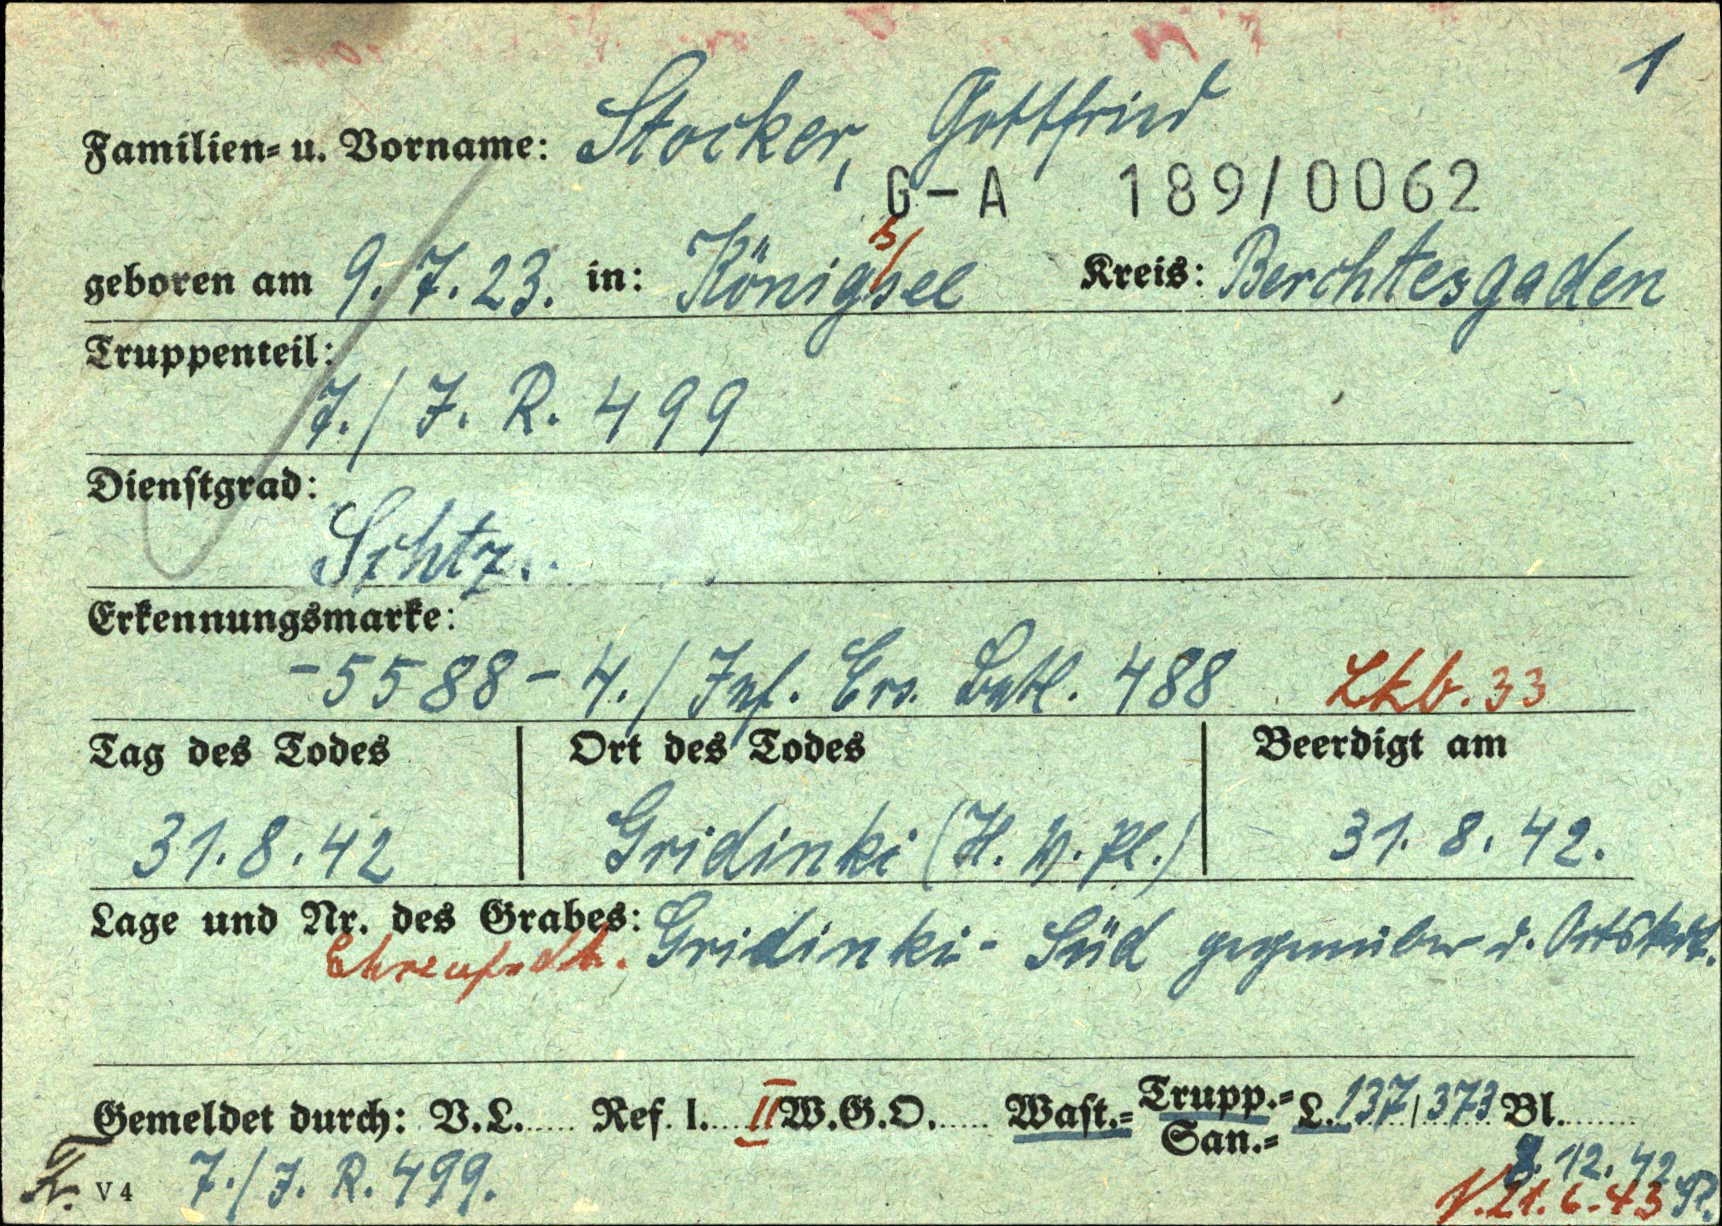 1
Familien- u. Vorname: Stocker, Gottfried
G-A 189/0062
geboren am 9.7.23. in: Königssee Kreis: Berchtesgaden
Truppenteil:
7./J. R. 499
Dienstgrad:
Schtz.
Erkennungsmarke:
-5588- 4./Inf. Ers. Batl. 488 Lkb. 33
Tag des Todes Ort des Todes Beerdigt am
31.8.42 Gridinki (H.V.Pl.) 31.8.42.
Lage und Nr. des Grabes: Gridinki-Süd gegenüber d. Ortskdt.
Ehrenfrdh.
Gemeldet durch: V.L. Ref. I. II W.G.O. Wast.- Trupp.- L. 137/373 Bl.
San.-
V 4 7./J. R. 499. 8.12.42
V. 21.6.43